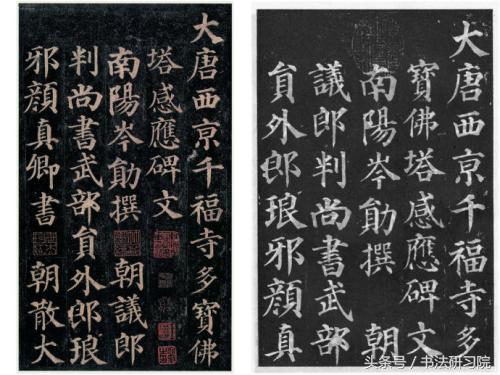 大唐西京千福寺多寶佛
塔感應碑文
南陽岑勛撰 朝議郎
判尚書武部貟外郎琅
邪顔真卿書 朝散大
大唐西京千福寺多
寶佛塔感應碑文
南陽岑勛撰 朝
議郎判尚書武部
貟外郎琅邪顔真
头条号 / 书法研习院